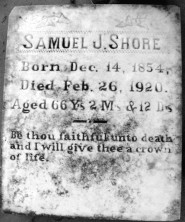 SAMUEL J. SHORE
Born Dec. 14, 1854,
Died Feb. 26, 1920.
Aged 66 Ys 2 Ms & 12 Ds
Be thou faithful unto death
and I will give thee a crown
of life.